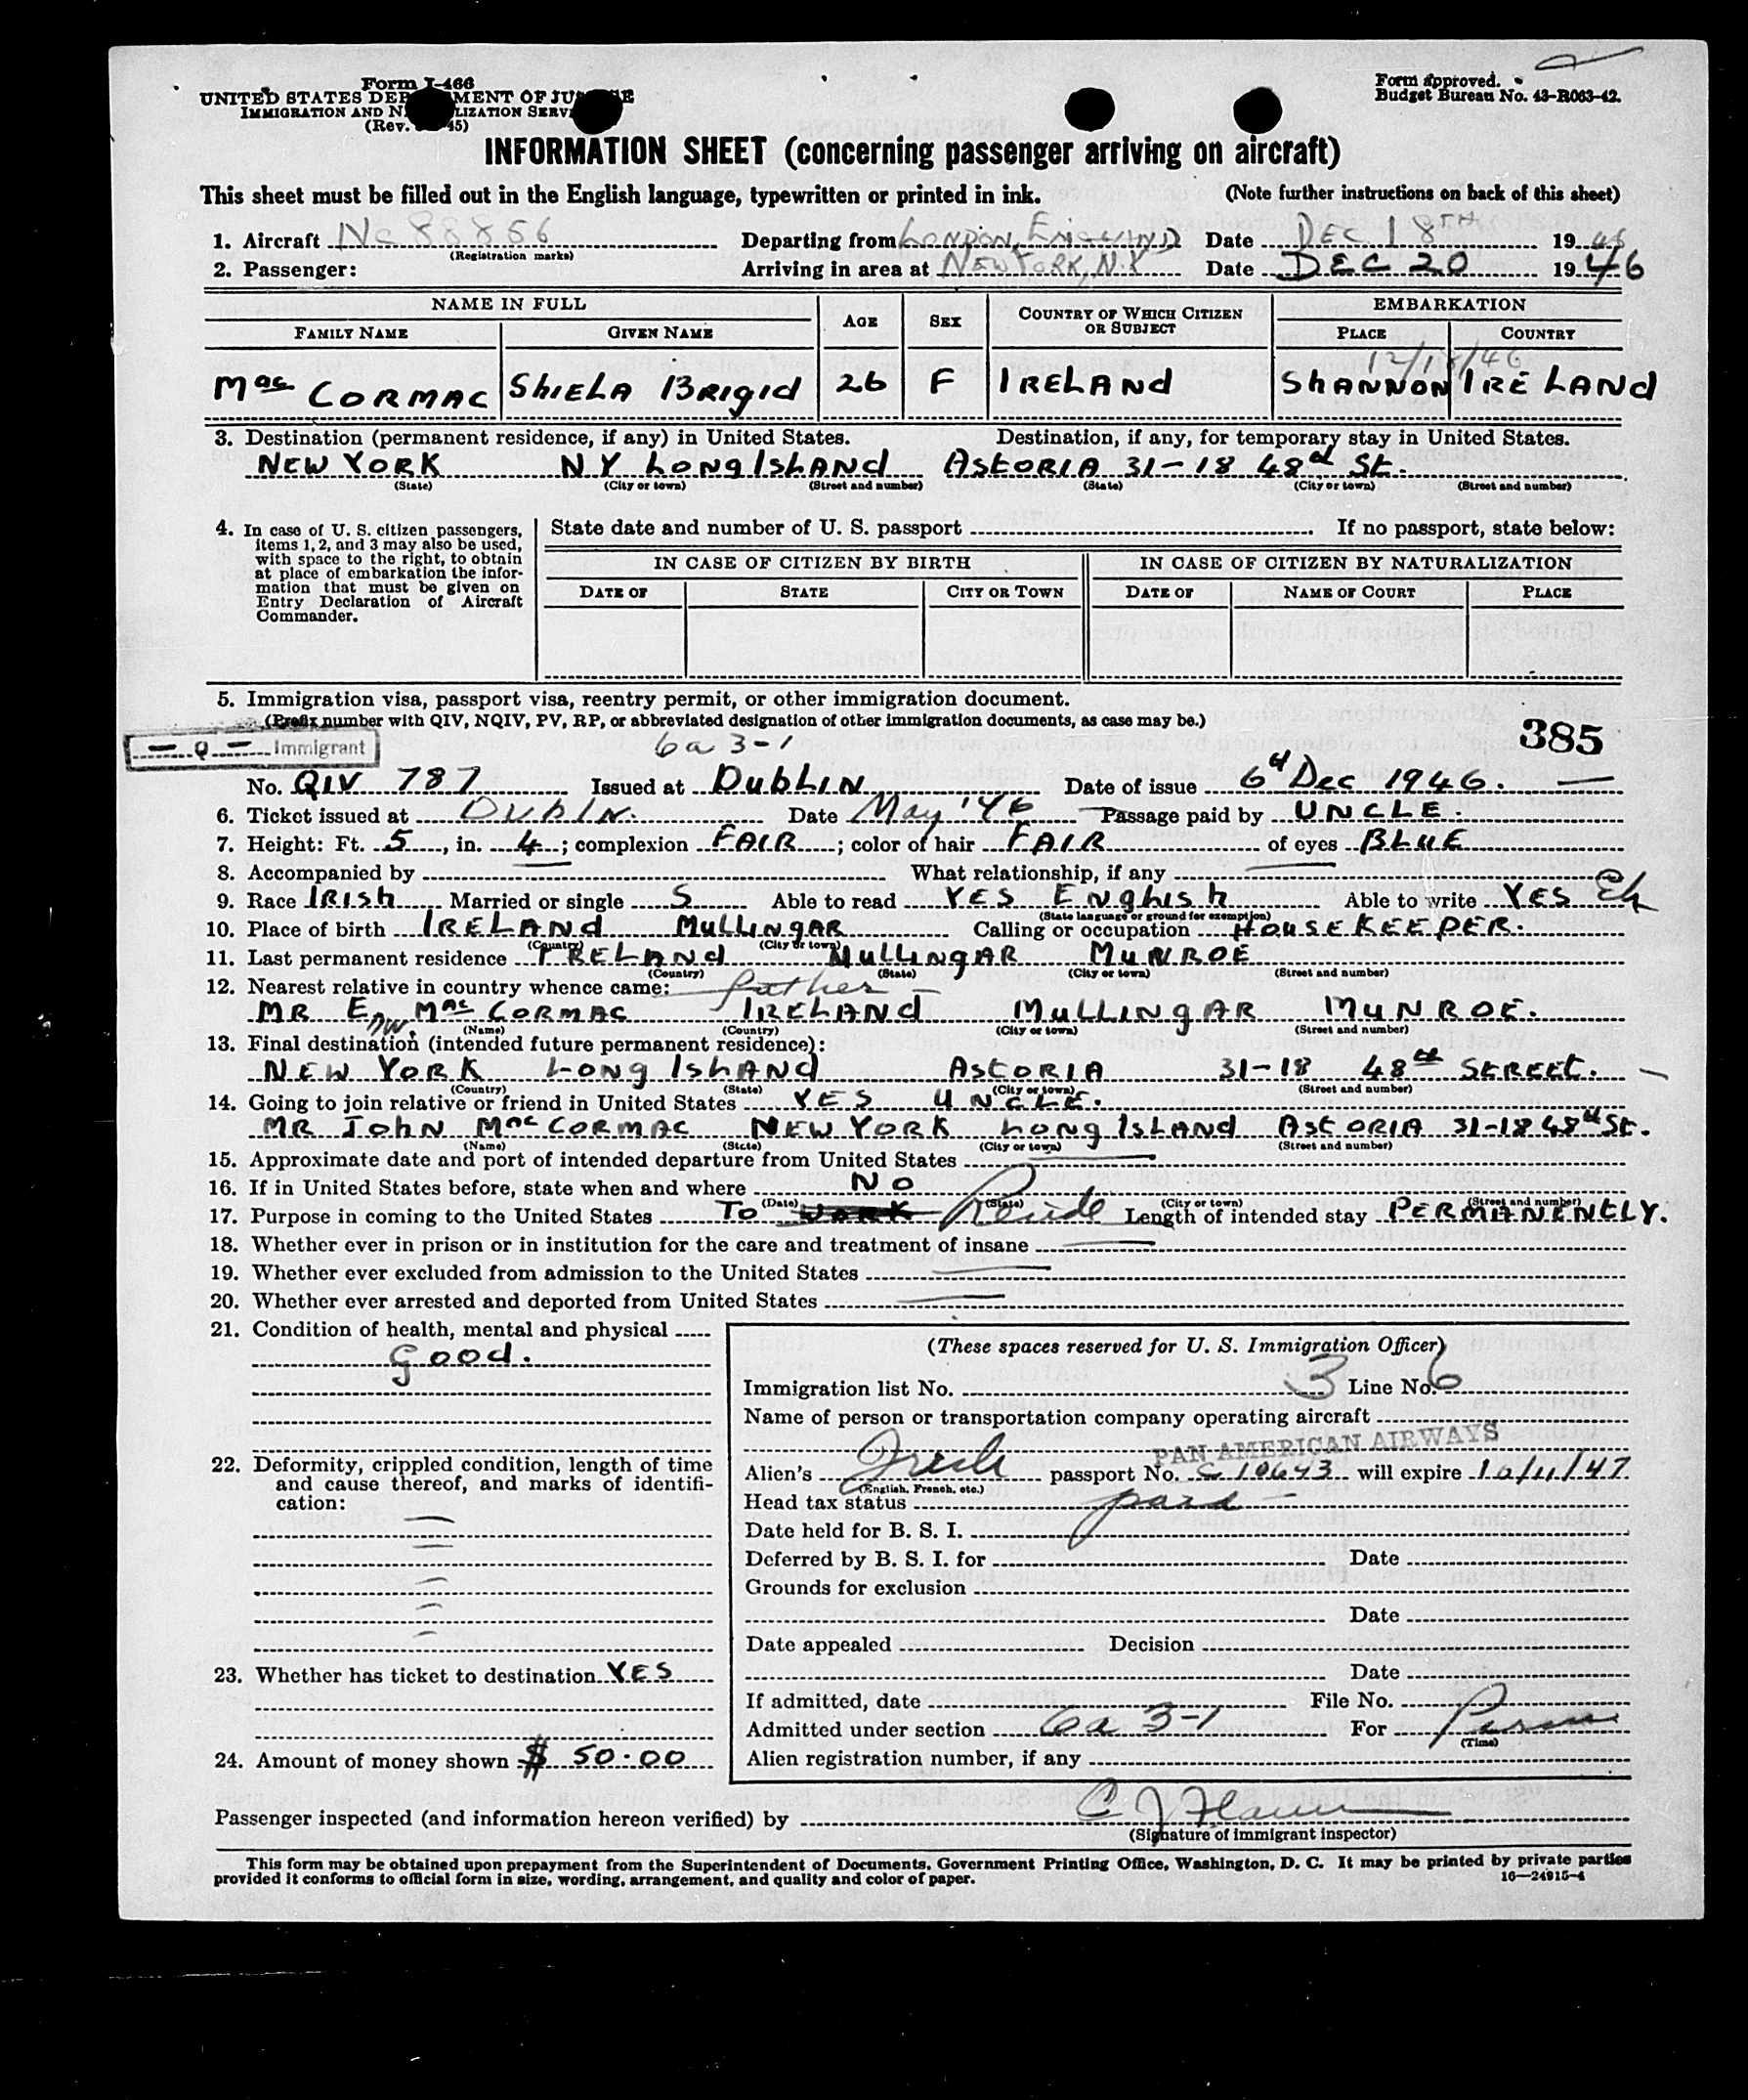 Form I-466
UNITED STATES DEPARTMENT OF JUSTICE
IMMIGRATION AND NATURALIZATION SERVICE
(Rev. 45)
Form approved.
Budget Bureau No. 43-R063-42.
INFORMATION SHEET (concerning passenger arriving on aircraft)
This sheet must be filled out in the English language, typewritten or printed in ink. (Note further instructions on back of this sheet)
1. Aircraft NC 88856 Departing from LONDON, ENGLAND Date DEC 18TH 1946
(Registration marks)
2. Passenger: Arriving in area at NEW YORK, N.Y Date DEC 20 1946
NAME IN FULL AGE SEX COUNTRY OF WHICH CITIZEN OR SUBJECT EMBARKATION
FAMILY NAME GIVEN NAME PLACE COUNTRY
12/18/46
Mac CORMAC ShIELA BRIgId 26 F IRELANd ShANNON IRELANd
3. Destination (permanent residence, if any) in United States. Destination, if any, for temporary stay in United States.
NEW YORK N Y LONgISLANd AStORIA 31-18 48d St.
(State) (City or town) (Street and number) (State) (City or town) (Street and number)
4. In case of U. S. citizen passengers, items 1, 2, and 3 may also be used, with space to the right, to obtain at place of embarkation the information that must be given on Entry Declaration of Aircraft Commander.
State date and number of U. S. passport If no passport, state below:
IN CASE OF CITIZEN BY BIRTH IN CASE OF CITIZEN BY NATURALIZATION
DATE OF STATE CITY OR TOWN DATE OF NAME OF COURT PLACE
5. Immigration visa, passport visa, reentry permit, or other immigration document.
(Prefix number with QIV, NQIV, PV, RP, or abbreviated designation of other immigration documents, as case may be.)
385
— Q — Immigrant 6a 3-1
No. QIV 787 Issued at DUbLIN Date of issue 6d Dec 1946.
6. Ticket issued at DUblN. Date May '46 Passage paid by UNCLE.
7. Height: Ft. 5, in. 4; complexion FAIR; color of hair FAIR of eyes BLUE
8. Accompanied by What relationship, if any
9. Race IRISh Married or single S Able to read YES ENglish Able to write YES
(State language or ground for exemption)
10. Place of birth IRELANd MULLINgAR Calling or occupation HOUSEKEEPER.
(Country) (City or town)
11. Last permanent residence IRELANd MULLINgAR MUNROE
(Country) (State) (City or town) (Street and number)
12. Nearest relative in country whence came: father
MR E. Mac CORMAC IRELANd MULLINgAR MUNROE.
(Name) (Country) (City or town) (Street and number)
13. Final destination (intended future permanent residence):
NEW YORK LONg ISLANd AStORIA 31-18 48th StREEt.
(Country) (State) (City or town) (Street and number)
14. Going to join relative or friend in United States YES UNCLE.
MR JOhN Mac CORMAC NEW YORK LONg ISLANd AStORIA 31-18 48d St.
(Name) (State) (City or town) (Street and number)
15. Approximate date and port of intended departure from United States
16. If in United States before, state when and where NO
(Date) (State) (City or town) (Street and number)
17. Purpose in coming to the United States TO WORK Reside Length of intended stay PERMANENtLY.
18. Whether ever in prison or in institution for the care and treatment of insane
19. Whether ever excluded from admission to the United States
20. Whether ever arrested and deported from United States
21. Condition of health, mental and physical
good.
22. Deformity, crippled condition, length of time and cause thereof, and marks of identification:
23. Whether has ticket to destination YES
24. Amount of money shown $ 50.00
(These spaces reserved for U. S. Immigration Officer)
Immigration list No. 3 Line No. 6
Name of person or transportation company operating aircraft
PAN AMERICAN AIRWAYS
Alien's Irish passport No. C 10643 will expire 10/11/47
(English, French, etc.)
Head tax status paid
Date held for B. S. I.
Deferred by B. S. I. for Date
Grounds for exclusion
Date
Date appealed Decision
Date
If admitted, date File No.
Admitted under section 6a 3-1 For Perm
(Time)
Alien registration number, if any
Passenger inspected (and information hereon verified) by C J
(Signature of immigrant inspector)
This form may be obtained upon prepayment from the Superintendent of Documents, Government Printing Office, Washington, D. C. It may be printed by private parties
provided it conforms to official form in size, wording, arrangement, and quality and color of paper. 16—24915-4